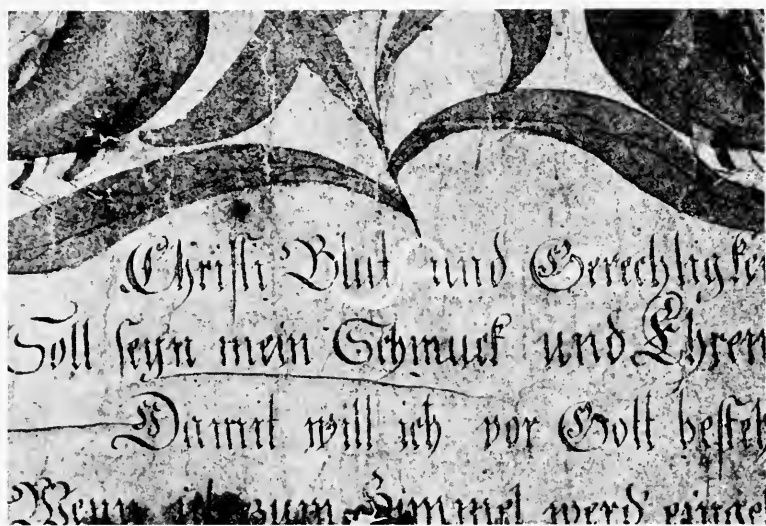 Christi Blut und Gerechtigkei
Soll seyn mein Schmuck und Ehren
Damit will ich vor Gott besteh
Wenn ich zum Himmel werd' einge